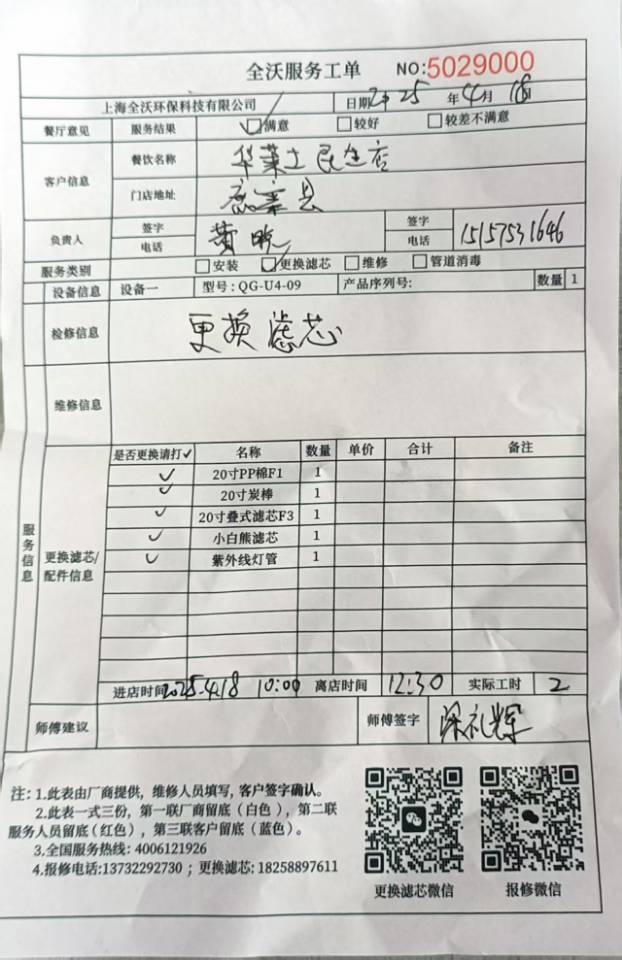 全沃服务工单 NO:5029000
上海全沃环保科技有限公司 日期2025年4月18日
餐厅意见 服务结果 ✓□满意 □较好 □较差不满意
客户信息 餐饮名称 华莱士民生店
门店地址 县
负责人 签字 黄 签字
电话 电话 15157531646
服务类别 □安装 ✓□更换滤芯 □维修 □管道消毒
设备信息 设备一 型号:QG-U4-09 产品序列号: 数量 1
检修信息 更换滤芯
维修信息
服务信息 更换滤芯/配件信息
是否更换请打✓ 名称 数量 单价 合计 备注
✓ 20寸PP棉F1 1
✓ 20寸炭棒 1
✓ 20寸叠式滤芯F3 1
✓ 小白熊滤芯 1
✓ 紫外线灯管 1
进店时间 2025.4.18 10:00 离店时间 12:30 实际工时 2
师傅建议 师傅签字 梁礼辉
注: 1.此表由厂商提供, 维修人员填写, 客户签字确认。
2.此表一式三份, 第一联厂商留底(白色), 第二联
服务人员留底(红色), 第三联客户留底(蓝色)。
3.全国服务热线: 4006121926
4.报修电话:13732292730 ; 更换滤芯: 18258897611
更换滤芯微信 报修微信